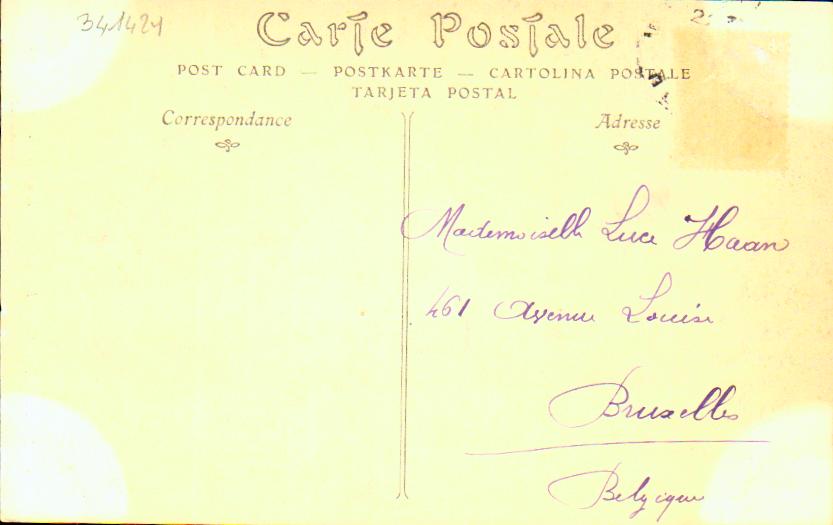 341421
Carte Postale
POST CARD — POSTKARTE — CARTOLINA POSTALE
TARJETA POSTAL
Correspondance
Adresse
Mademoiselle Luce Haan
461 Avenue Louise
Bruxelles
Belgique